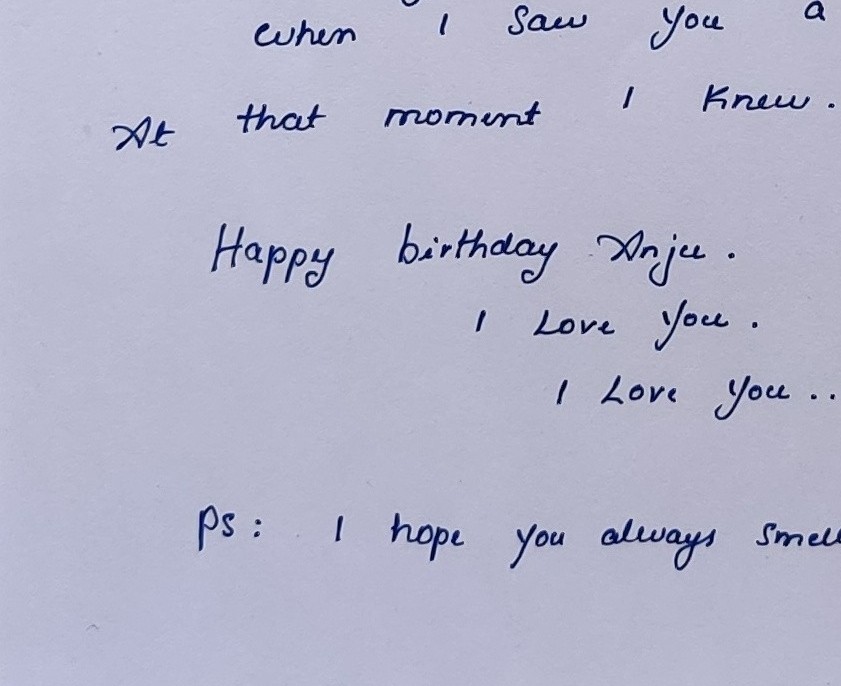 when I saw you a
At that moment I knew.
Happy birthday Anju.
I Love you.
I Love you..
Ps: I hope you always smell